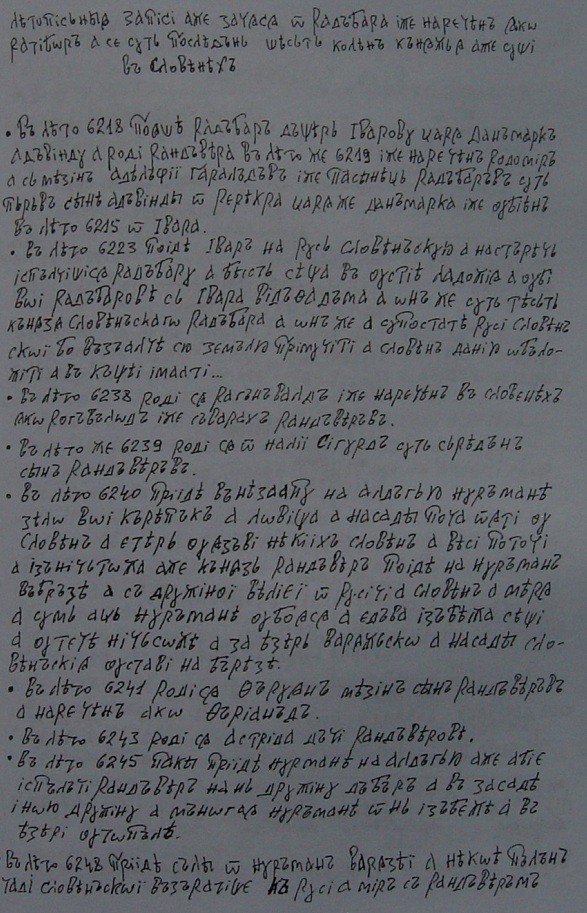 лѣтопісьныѩ запісі аже зачѧсѧ ѿ Радъбара іже нареченъ ѩкѡ
ратіборъ а се суть послѣдьнь шѣсть колѣнъ кънѧжьѧ аже сущі
въ словѣнѣхъ
• въ лѣто 6218 поѩшѣ Радъбаръ дъщерь Іварову царѧ Данъмаркъ
Алдъвінду а роді Рандъвѣра въ лѣто же 6219 іже нареченъ Родоміръ
а съ мѣзінъ аделфіі Гаралдъвъ іже пасынець Радъбаръвъ суть
пърьвъ сынъ алдъвінды ѿ Рерікра царѧ же данъмарка іже оубіенъ
въ лѣто 6215 ѿ Івара.
• въ лѣто 6223 поіде Іваръ на Русь словѣньскую а настърѣчь
іспълчішісѧ Радъбару а бысть сѣча въ оустіѣ ладожіѧ а оубі
воі Радъбаровѣ съ Івара відъѳадъма а ѡнъ же суть тѣсть
кънѧзѧ словѣньскагѡ Радъбара а ѡнъ же а супостатъ Русі словѣн
скѡі бо възъалчѣ сю земълю прімучіті а словѣнъ данію ѡбъло-
жіті а въ къщі іматі...
• въ лѣто 6238 роді сѧ Рагънъвалдъ іже нареченъ въ словенѣхъ
ѩкѡ рогъвълодъ іже съварахъ рандъвѣръвъ.
• въ лѣто же 6239 роді сѧ ѿ наліі Сігурдъ суть сьрѣдьнъ
сынъ Рандъвѣръвъ.
• въ лѣто 6240 прііде вънѣзаапу на алдъгью нурманѣ
зѣлѡ вѡі кърѣпъкъ а лѡвіца а насады поча ѿѩті оу
словѣнъ а етѣръ оуѩзъві нѣкіхъ словѣнъ а вѣсі поточі
а ізънічьтожа аже кънѧзь Рандъвѣръ поіде на нурманъ
въбръзѣ а съ дружіноі вѣліеі ѿ русічі а словѣнъ а мѣрѧ
а сумь аць нурманѣ оубоѩсѧ а едъва ізъбѣжа сѣчі
а оутече нічьсоже а за езеръ варѧжьскѡ а насады сло-
вѣньскіѧ оуставі на березѣ.
• въ лѣто 6241 роді сѧ Ѳъруѩнъ мѣзінъ сынъ Рандъвѣръвъ
а нареченъ ѩкѡ Ѳъріанъдъ.
• въ лѣто 6243 роді сѧ астріда дъчі Рандъвѣровѣ.
• въ лѣто 6245 пакы прііде нурманѣ на алдъгью аже абіе
іспълъті Рандъвѣръ на нь дружіну дъбъръ а въ засадѣ
іную дружіну а мъногаѧ нурманѣ ѿ нь ізъбежа а въ
езері оутопъле.
въ лѣто 6248 прііде сълы ѿ нурманъ варѧзѣі а нѣкѡѣ пълънъ
чаді словѣньскѡі възъратіше къ русі а міръ съ Рандъвѣръмъ